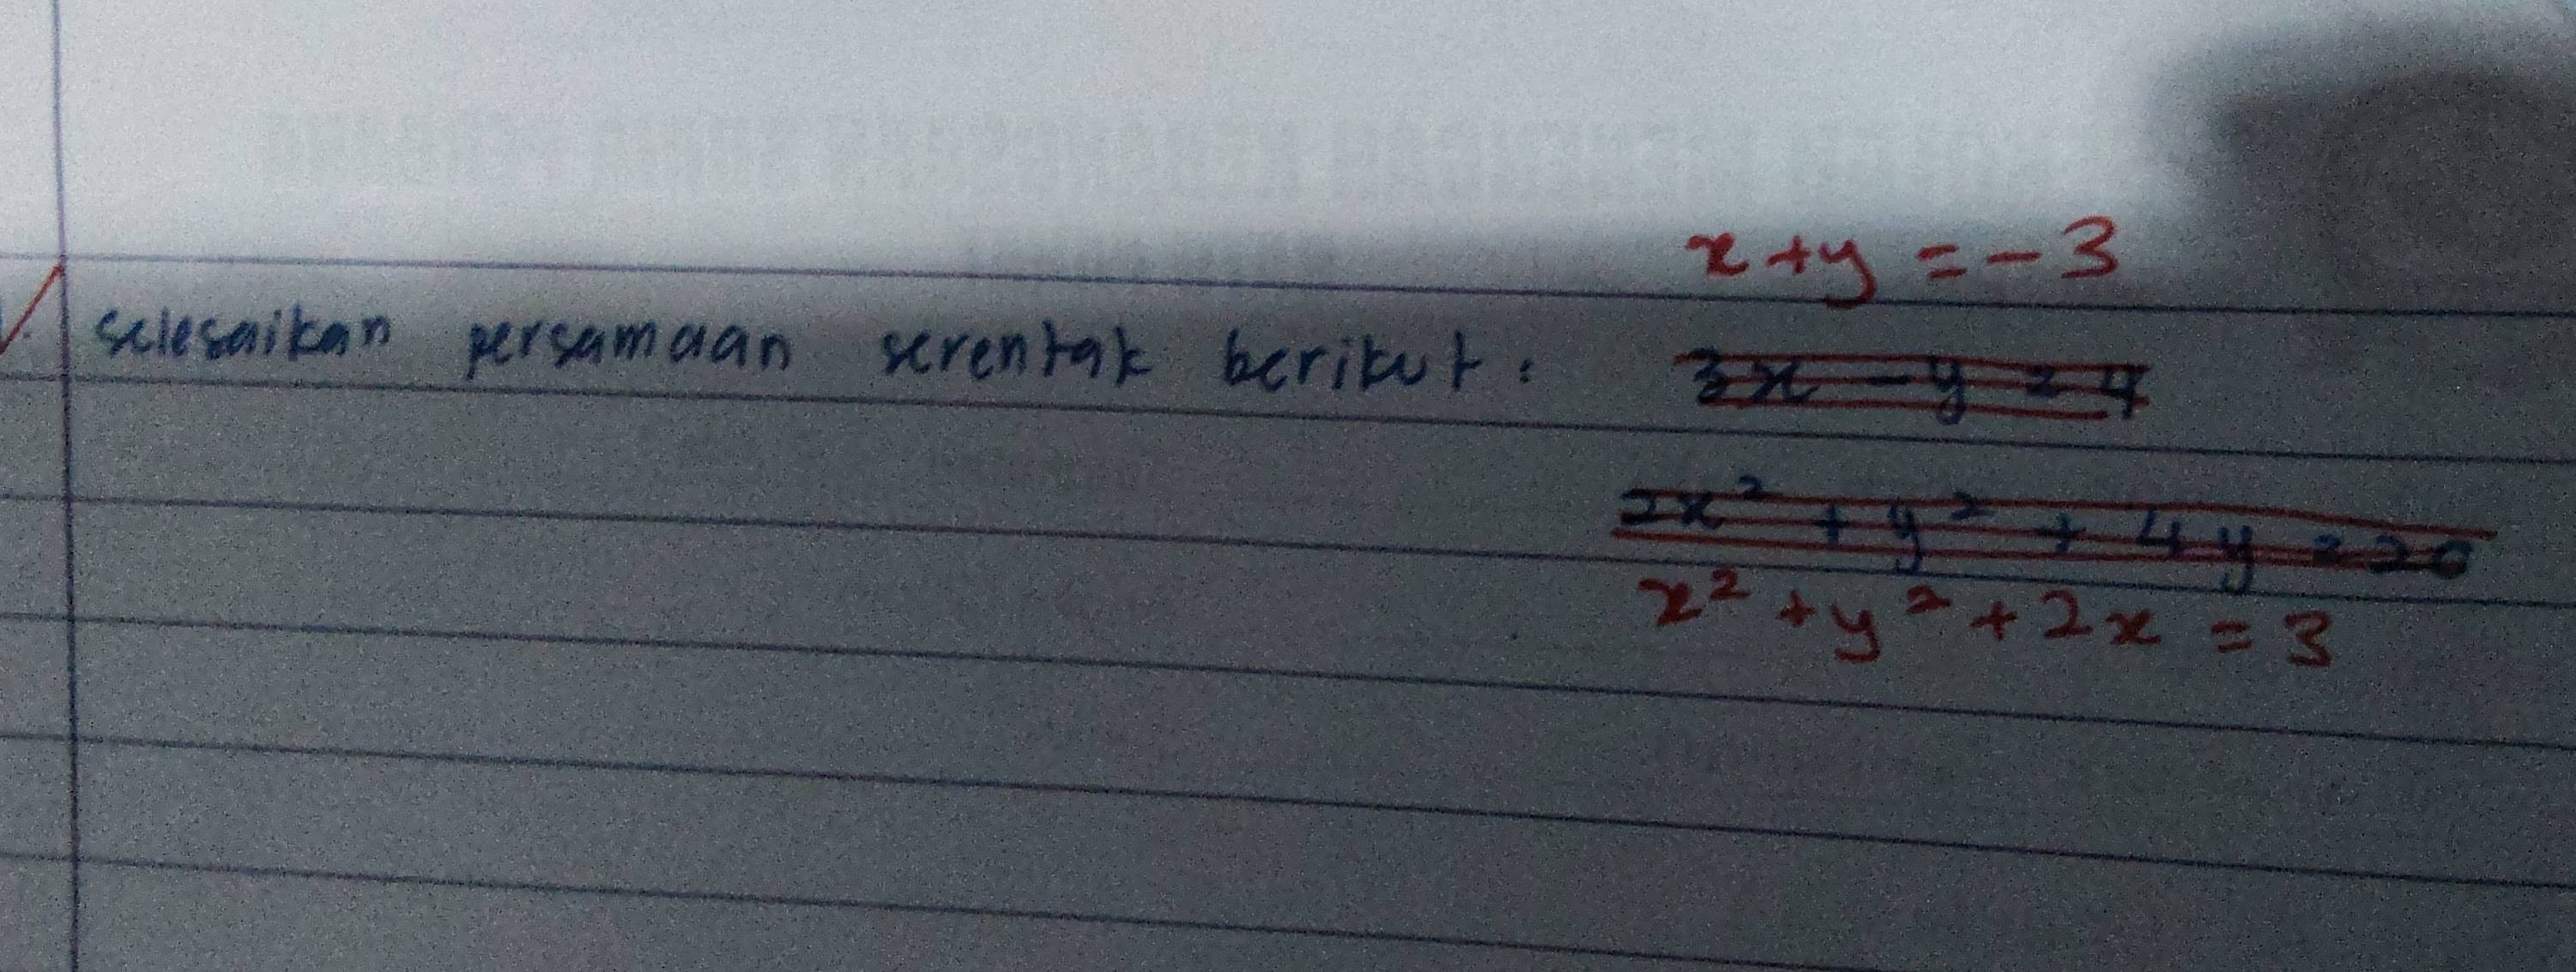 x + y = - 3
selesaikan persamaan serentak berikut : 3x - y = 4
2x² + y² + 4y = 20
x² + y² + 2x = 3